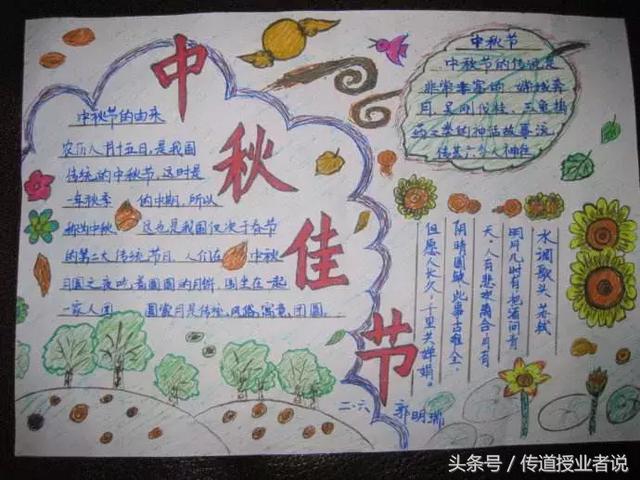 中秋佳节
中秋节的由来
农历八月十五日,是我国
传统的中秋节,这时是
一年秋季 的中期,所以
称为中秋 这也是我国仅次于春节
的第二大传统节日,人们在 中秋
月圆之夜吃着圆圆的月饼,围坐在一起
一家人团 圆赏月是传统,风俗,寓意,团圆。
中秋节
中秋节的传说是
非常丰富的,嫦娥奔
月,吴刚伐桂,玉兔捣
药之类的神话故事流
水调歌头 苏轼
明月几时有,把酒问青
天,人有悲欢离合,月有
阴晴圆缺,此事古难全,
但愿人长久,千里共婵娟。
二.六 郭明瑞
头条号/传道授业者说